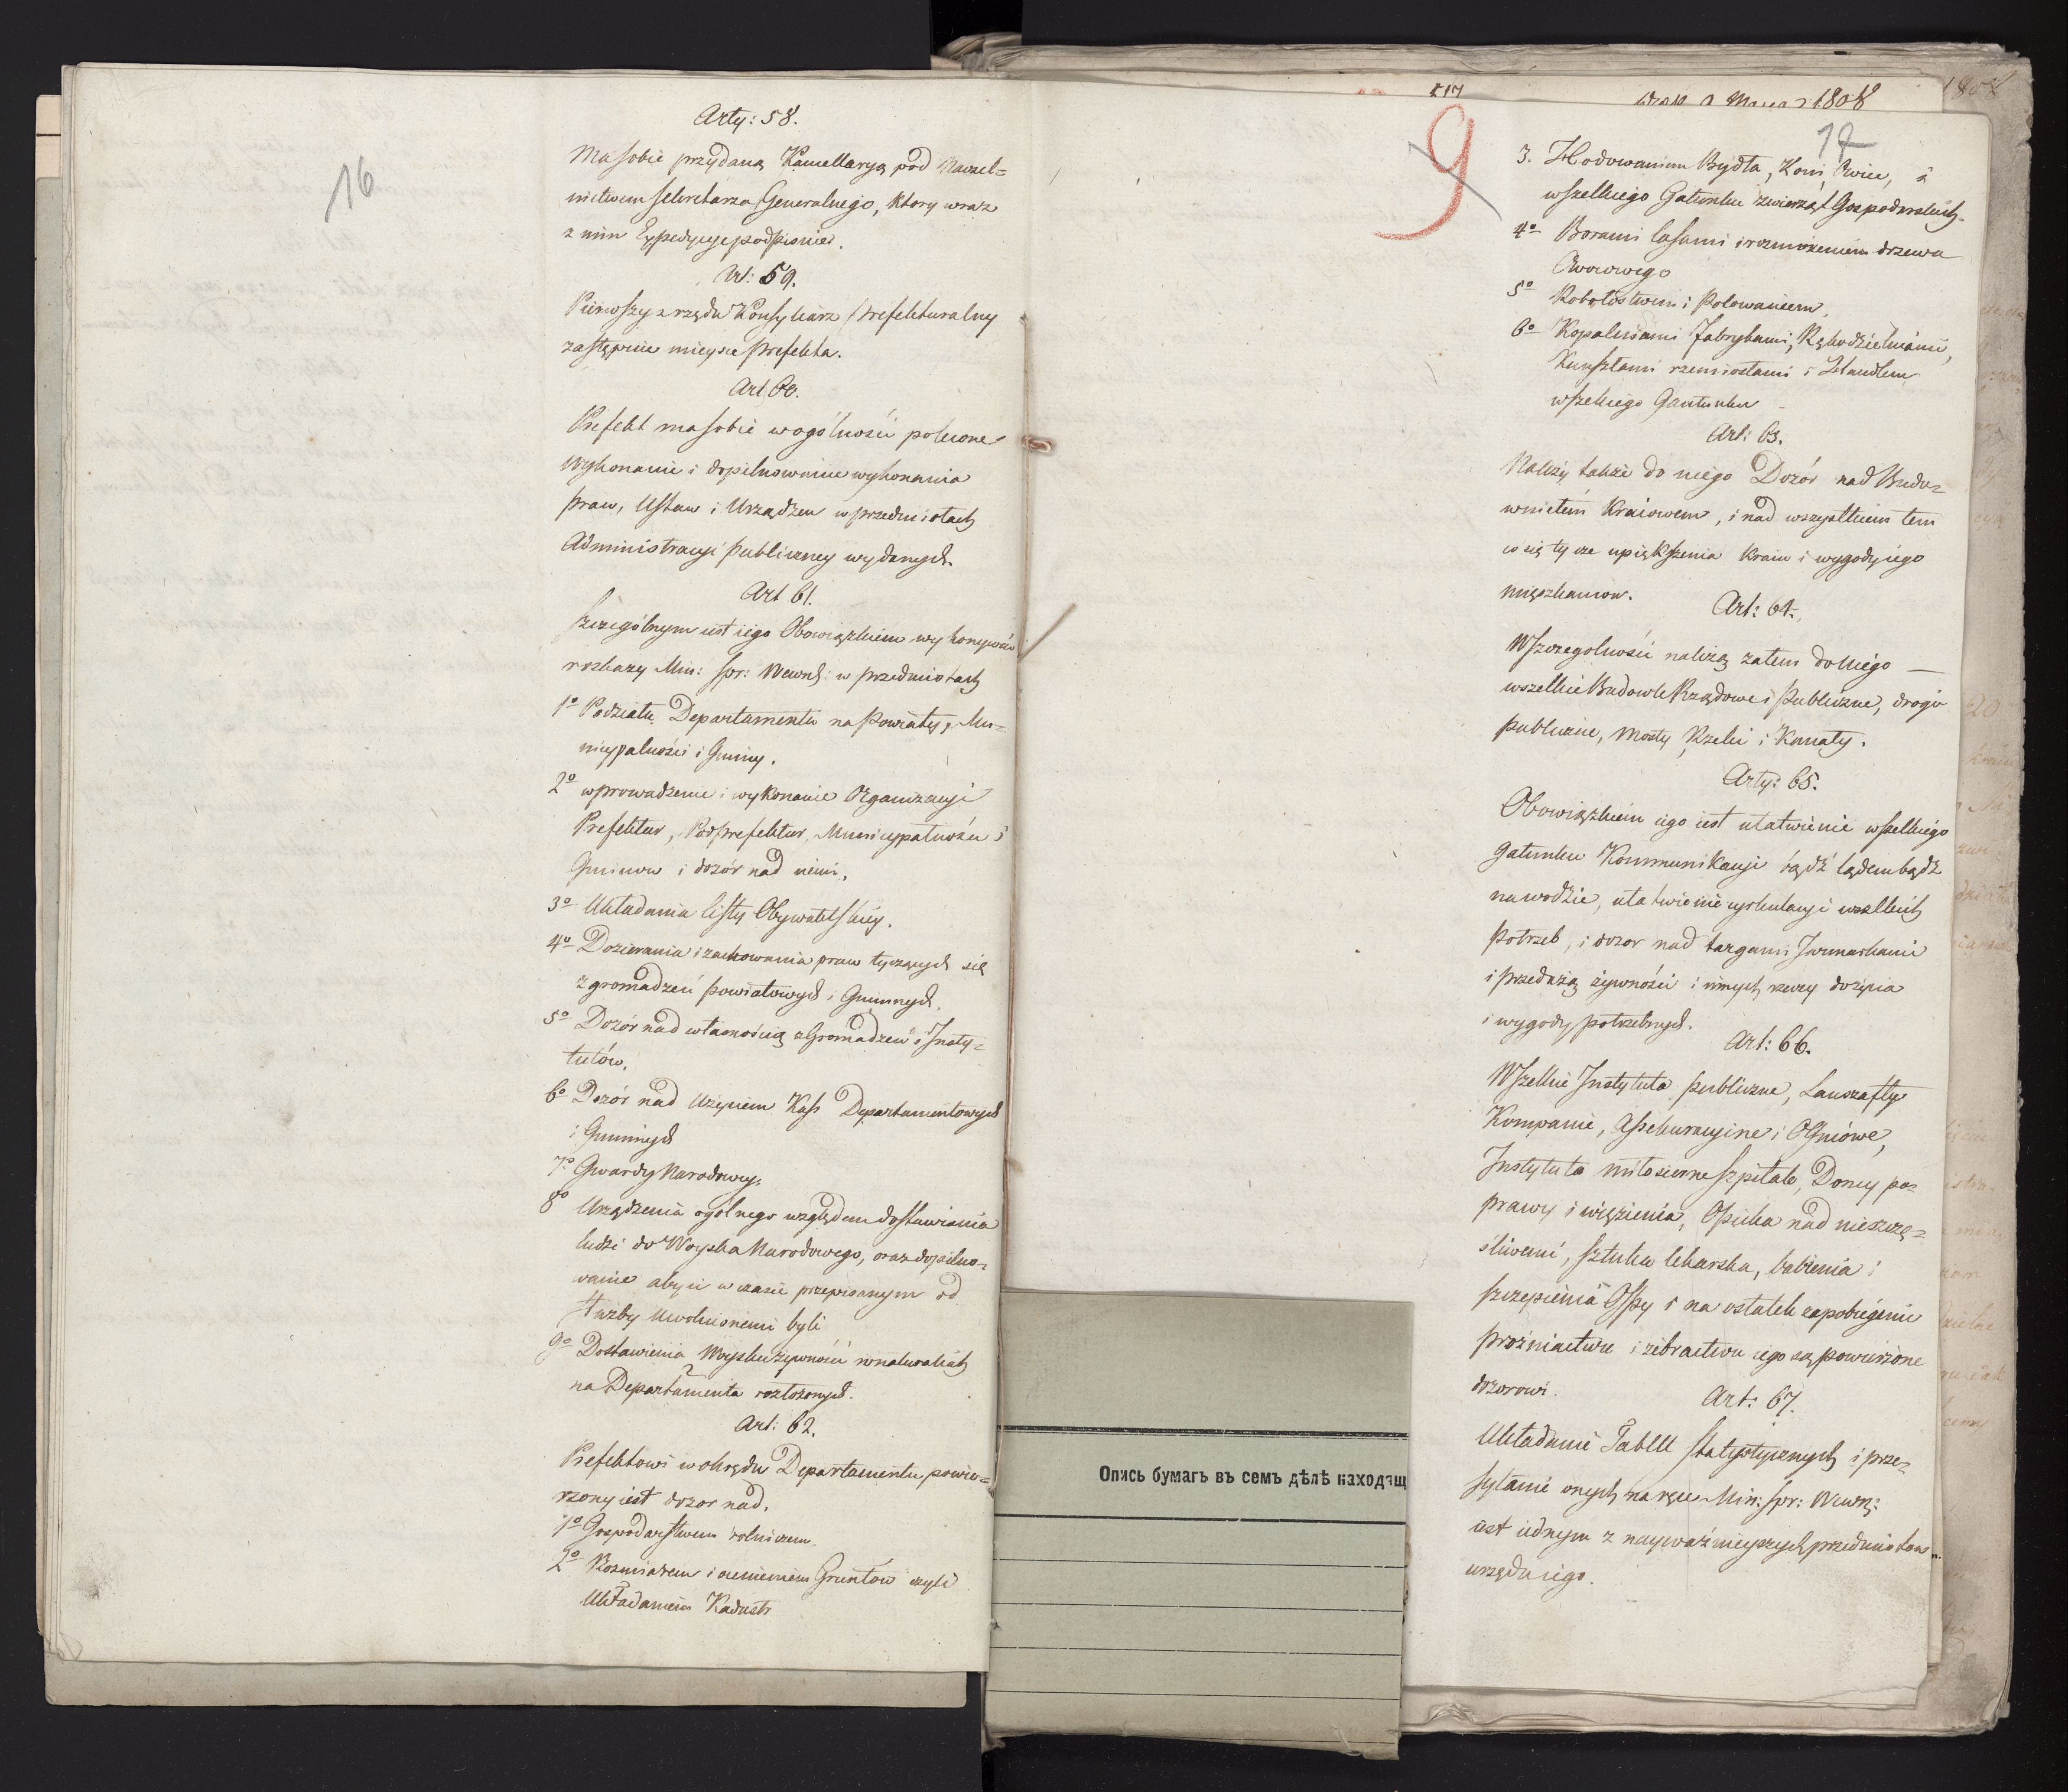 16
Arty: 58.
Ma sobie przydaną Kancellaryą pod Naczel=
nictwem Sekretarza Generalnego, który wraz
z nim Expedycye podpisuie.
Art: 59.
Pierwszy z rzędu Konsyliarz Prefekturalny
zastępuie mieysce Prefekta.
Art 60.
Prefekt ma sobie w ogólności polecone
wykonanie i dopilnowanie wykonania
praw, Ustaw i Urządzeń w przedmiotach
Administracyi publiczney wydanych.
Art 61.
Szczególnym iest iego Obowiązkiem wykonywać
rozkazy Min: Spr: Wewnę: w przedmiotach
1o Podziału Departamentu na Powiaty, Mu=
nicypalności i Gminy.
2o wprowadzenie i wykonanie Organizacyi
Prefektur, Podprefektur, Municypalności i
Gminow i dozór nad niemi.
3o Układania listy Obywatelskiéy.
4o Dozierania i zachowania praw tyczących się
zgromadzeń powiatowych i Gminnych.
5o Dozór nad własnością zgromadzeń i Insty=
tutów.
6o Dozór nad Użyciem Kass Departamentowych
i Gminnych
7o Gwardy Narodowy.
8o Urządzenia ogólnego względem dostawiania
ludzi do Woyska Narodowego, oraz dopilno=
wanie aby ci w czasie przepisanym od
służby Uwolnionemi byli
9o Dostawienia Woysku żywności w naturaliach
na Departamenta rozłożonych.
Art: 62.
Prefektowi w okręgu Departamentu powie=
rzony iest dozor nad.
1o Gospodarstwem rolniczem.
2o Rozmiarem i ocenieniem Gruntów czyli
Układaniem Kadastr
17
1808
1808
9
17
3. Hodowaniem Bydła, Koni, Owiec, i
wszelkiego Gatunku zwierząt Gospodarskich.
4o Borami lasami i rozmnożeniem drzewa
Owocowego
5o Robołostwem i Polowaniem.
6o Kopalniami Fabrykami, Rękodzielniami,
Kunsztami rzemiosłami i Handlem
wszelkiego Gantunku
Art: 63.
Należy także do niego Dozór nad Budo=
wnictém Kraiowem, i nad wszystkiem tem
co się tycze upiększenia Kraiu i wygody iego
mięszkancow.
Art: 64.
W szczegolności należą zatem do Niego —
wszelkie Budowle Rządowe i Publiczne, drogi
publiczne, Mosty, Rzeki i Kanały.
Arty: 65.
Obowiązkiem iego iest ułatwienie wszelkiego
gatunku Kommunikacyi bądź lądem bądź
na wodzie, ułatwienie cyrkulacyi wszelkich
potrzeb, i dozor nad targami Jarmarkami
i przedażą żywności i innych rzeczy do życia
i wygody potrzebnych.
Art: 66.
Wszelkie Instytuta publiczne, Lanszafty
Kompanie, Assekuracyine i Ogniowe,
Instytuta miłosierne Szpitale, Domy po=
prawy i więzienia, Opieka nad nieszczę=
śliwemi, sztuka lekarska, babienia i
szczepienia Ospy i na ostatek zapobieżenie
prożniactwu i żebractwu iego są powierzone
dozorowi.
Art: 67.
Układanie Tabell statystycznych i prze=
syłanie onych na ręce Min: Spr: Wewnę:
iest iednym z nayważnieyszych przedmiotow
urzędu iego.
Опись бумагъ въ семъ дѣлѣ находящ